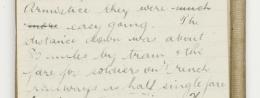 Armistice they were much
more easy going. The
distance down was about
miles by train & the
fare for soldier on French
railways is half single fare